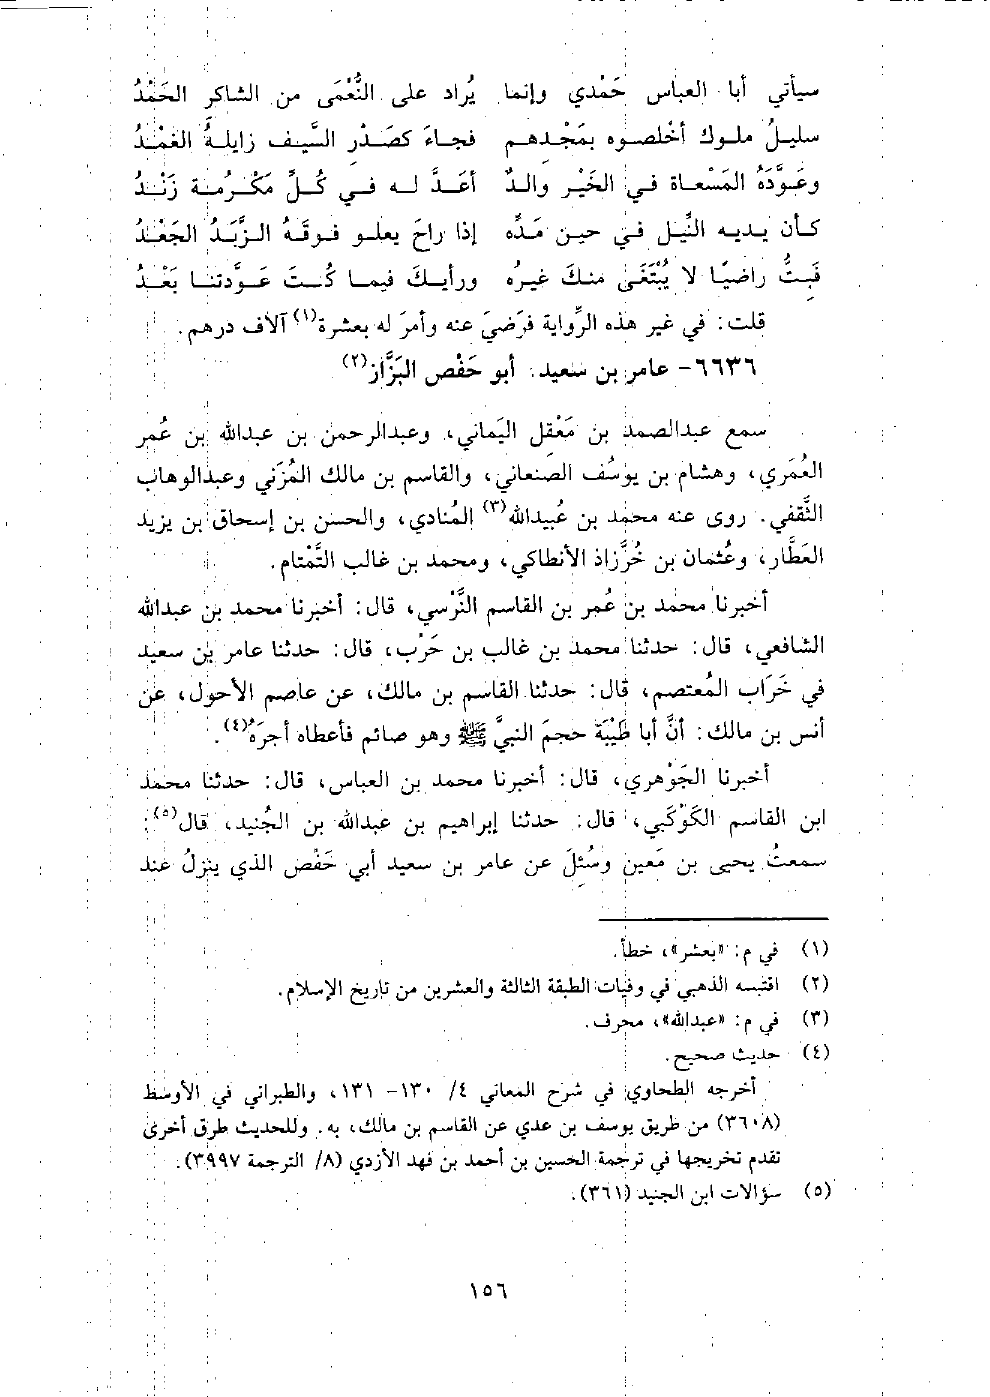 سيأتي أبا العباس حَمْدي وإنما يُراد على النُّعْمَى من الشاكر الحَمْدُ
سليلُ ملوك أخْلصوه بمَجْدهم فجاءَ كصَدْرِ السَّيف زايلهُ الغمْدُ
وعَوَّدَهُ المَسْعاة في الخَيْر والدٌ أعَدَّ له في كُلِّ مَكْرُمة زَنْدُ
كأن يديه النِّيل في حين مَدِّه إذا راحَ يعلو فوقَهُ الزَّبَدُ الجَعْدُ
فَبِتُّ راضيًا لا يُبْتَغَى منكَ غيرُه ورأيك فيما كُنتَ عَوَّدتنا بَعْدُ
قلت: في غير هذه الرِّواية فرَضيَ عنه وأمرَ له بعشرة(١) آلاف درهم.
٦٦٣٦- عامر بن سعيد، أبو حَفْص البَزَّاز(٢)
سمع عبدالصمد بن مَعْقِل اليَماني، وعبدالرحمن بن عبدالله بن عُمر
العُمَري، وهشام بن يوسُف الصنعاني، والقاسم بن مالك المُزَني وعبدالوهاب
الثَّقفي. روى عنه محمد بن عُبيدالله(٣) المُنادي، والحسن بن إسحاق بن يزيد
العَطَّار، وعُثمان بن خُرَّزاذ الأنطاكي، ومحمد بن غالب التَّمْتام.
أخبرنا محمد بن عُمر بن القاسم النَّرْسي، قال: أخبرنا محمد بن عبدالله
الشافعي، قال: حدثنا محمد بن غالب بن حَرْب، قال: حدثنا عامر بن سعيد
في خَرَاب المُعتصم، قال: حدثنا القاسم بن مالك، عن عاصم الأحول، عن
أنس بن مالك: أنَّ أبا طَيْبَة حجمَ النبيَّ ﷺ وهو صائم فأعطاه أجرَهُ(٤).
أخبرنا الجَوْهري، قال: أخبرنا محمد بن العباس، قال: حدثنا محمد
ابن القاسم الكَوْكَبي، قال: حدثنا إبراهيم بن عبدالله بن الجُنيد، قال(٥):
سمعتُ يحيى بن مَعين وسُئِلَ عن عامر بن سعيد أبي حَفْص الذي ينزلُ عند
(١) في م: «بعشر»، خطأ.
(٢) اقتبسه الذهبي في وفيات الطبقة الثالثة والعشرين من تاريخ الإسلام.
(٣) في م: «عبدالله»، محرف.
(٤) حديث صحيح.
أخرجه الطحاوي في شرح المعاني ٤/ ١٣٠- ١٣١، والطبراني في الأوسط
(٣٦٠٨) من طريق يوسف بن عدي عن القاسم بن مالك، به. وللحديث طرق أخرى
تقدم تخريجها في ترجمة الحسين بن أحمد بن فهد الأزدي (٨/ الترجمة ٣٩٩٧).
(٥) سؤالات ابن الجنيد (٣٦١).
١٥٦